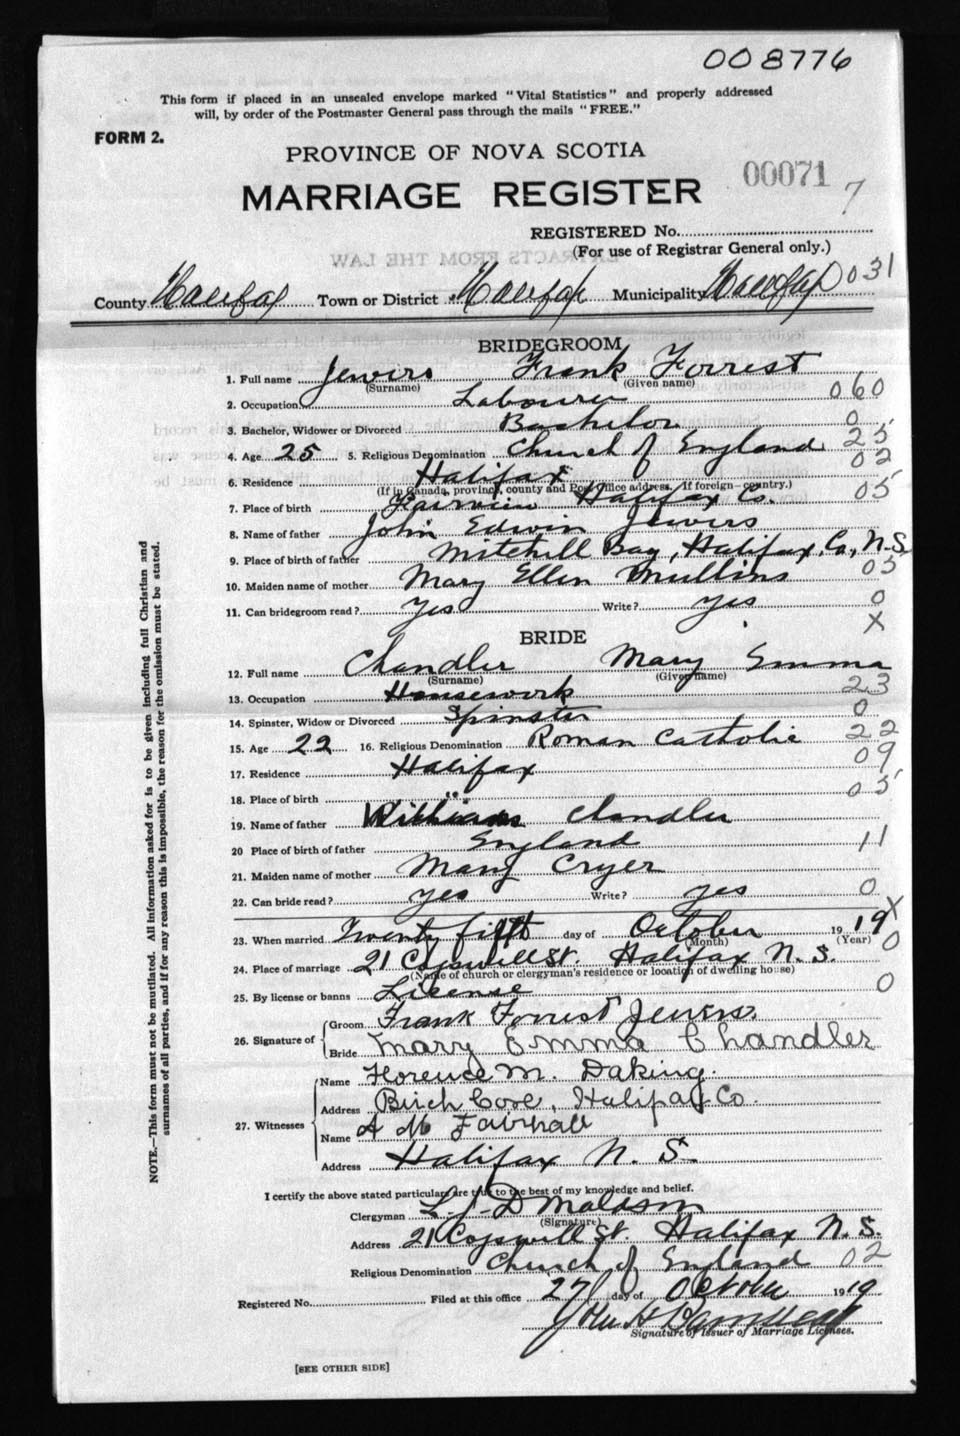 008776
This form if placed in an unsealed envelope marked "Vital Statistics" and properly addressed
will, by order of the Postmaster General pass through the mails "FREE."
FORM 2.
PROVINCE OF NOVA SCOTIA
MARRIAGE REGISTER 00071 7
REGISTERED No.
(For use of Registrar General only.)
EXTRACTS FROM THE LAW
County Halifax Town or District Halifax Municipality Halifax 031
BRIDEGROOM
1. Full name Jewers Frank Forrest
(Surname) (Given name)
2. Occupation Labourer 060
3. Bachelor, Widower or Divorced Bachelor 0
4. Age 25 5. Religious Denomination Church of England 25
02
6. Residence Halifax
(If in Canada, province, county and Post Office address. If foreign—country.)
7. Place of birth Fairview Halifax Co. 05
8. Name of father John Edwin Jewers
9. Place of birth of father Mitchell Bay, Halifax, Co., N.S.
10. Maiden name of mother Mary Ellen Mullins 05
11. Can bridegroom read? Yes Write? yes 0
X
BRIDE
12. Full name Chandler Mary Emma
(Surname) (Given name)
13. Occupation Housework 23
14. Spinster, Widow or Divorced Spinster 0
15. Age 22 16. Religious Denomination Roman Catholic 22
17. Residence Halifax 09
18. Place of birth " 05
19. Name of father William Chandler
20 Place of birth of father England 11
21. Maiden name of mother Mary Cryer
22. Can bride read? yes Write? yes 0
X
23. When married Twenty fifth day of October 1919
(Month) (Year) 0
24. Place of marriage 21 Cogswell St. Halifax N. S.
(Name of church or clergyman's residence or location of dwelling house)
25. By license or banns License 0
26. Signature of Groom Frank Forrest Jewers.
Bride Mary Emma Chandler
27. Witnesses Name Florence M. Daking.
Address Birch Cove, Halifax Co.
Name A M
Address Halifax N. S.
I certify the above stated particulars are true to the best of my knowledge and belief.
Clergyman L. J. Donaldson
(Signature)
Address 21 Cogswell St. Halifax N. S.
Religious Denomination Church of England 02
Registered No. Filed at this office 27 day of October 1919
John H
Signature of Issuer of Marriage Licenses.
[SEE OTHER SIDE]
NOTE.—This form must not be mutilated. All information asked for is to be given including full Christian and
surnames of all parties, and if for any reason this is impossible, the reason for the omission must be stated.